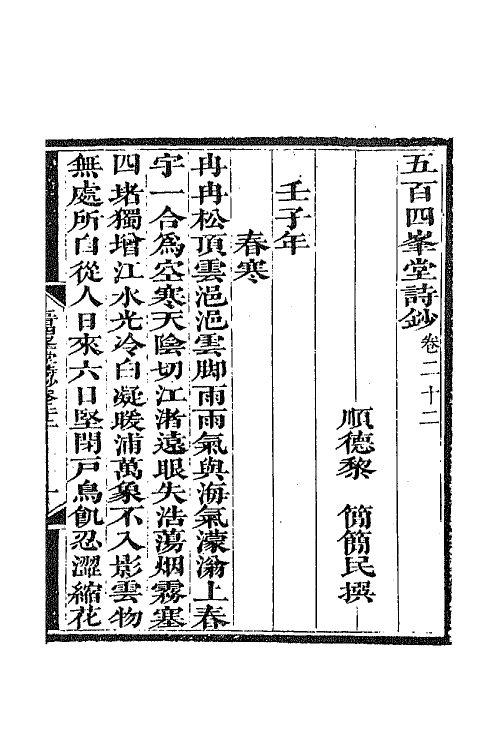 五百四峯堂詩鈔卷二十二
順德黎 簡簡民撰
壬子年
春寒
冉冉松頂雲浥浥雲脚雨雨氣與海氣濛滃上春
宇一合為空寒天陰切江渚遠眼失浩蕩烟霧塞
四堵獨增江水光冷白凝暖浦萬象不入影雲物
無處所自從人日來六日堅閉戸鳥飢忍澀縮花